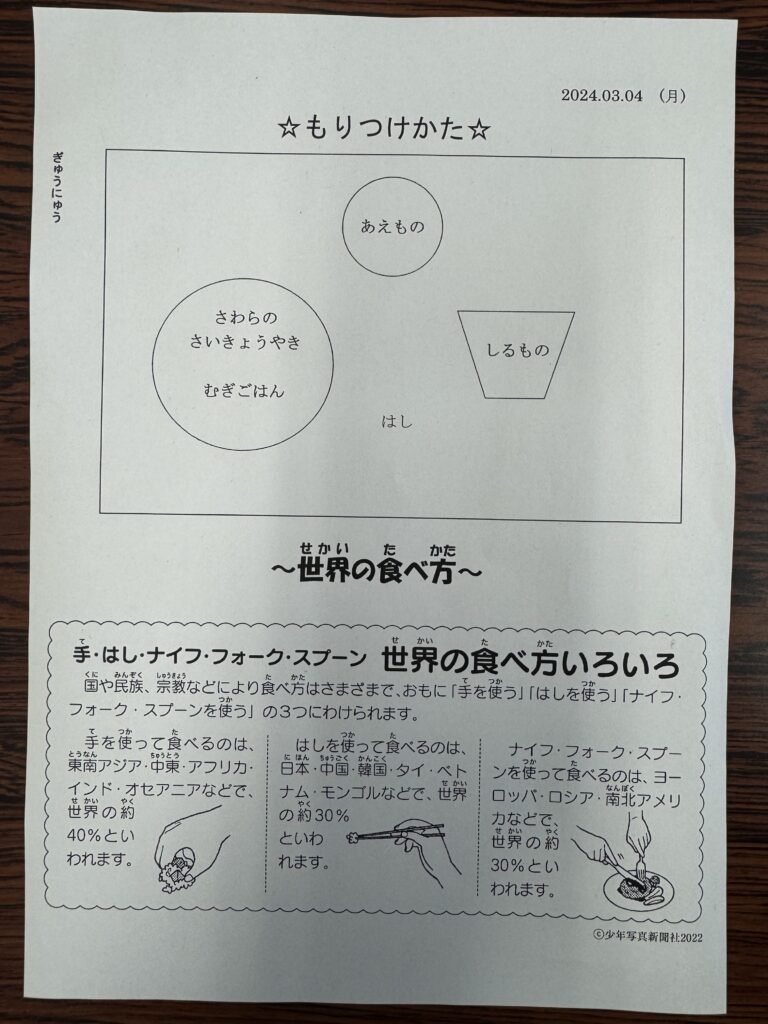 2024.03.04 (月)
☆もりつけかた☆
ぎゅうにゅう
あえもの
さわらの
さいきょうやき
むぎごはん
しるもの
はし
～世界の食べ方～
手・はし・ナイフ・フォーク・スプーン 世界の食べ方いろいろ
国や民族、宗教などにより食べ方はさまざまで、おもに「手を使う」「はしを使う」「ナイフ・
フォーク・スプーンを使う」の3つにわけられます。
手を使って食べるのは、
東南アジア・中東・アフリカ・
インド・オセアニアなどで、
世界の約
40％とい
われます。
はしを使って食べるのは、
日本・中国・韓国・タイ・ベト
ナム・モンゴルなどで、世界
の約30％
といわ
れます。
ナイフ・フォーク・スプー
ンを使って食べるのは、ヨー
ロッパ・ロシア・南北アメリ
カなどで、
世界の約
30％とい
われます。
©少年写真新聞社2022